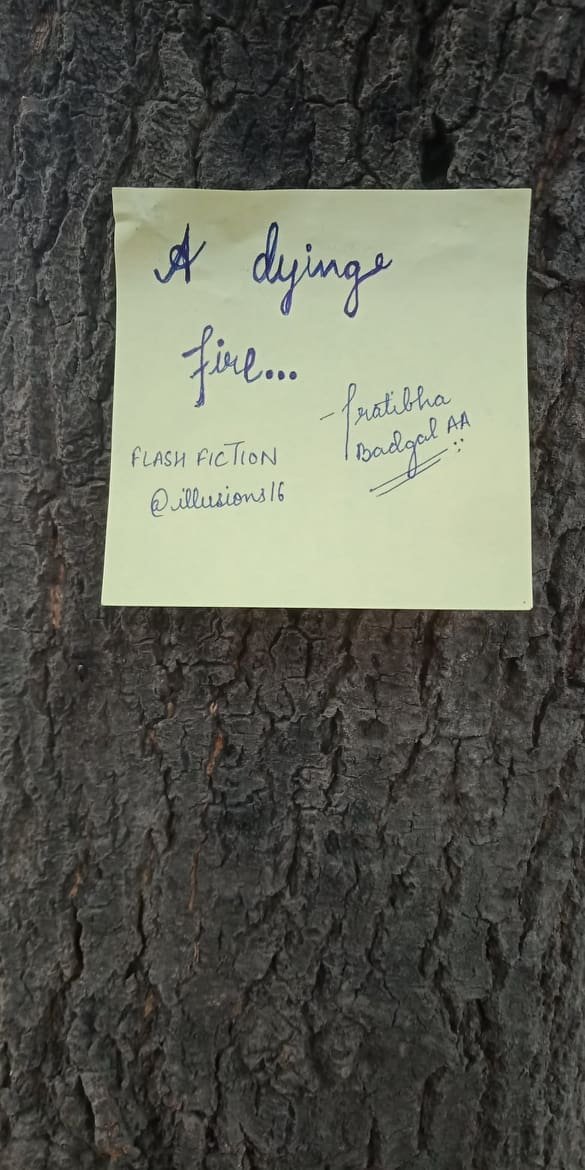 A dyinge
fire...
- Pratibha
Badgal AA
FLASH FICTION
@illusions16